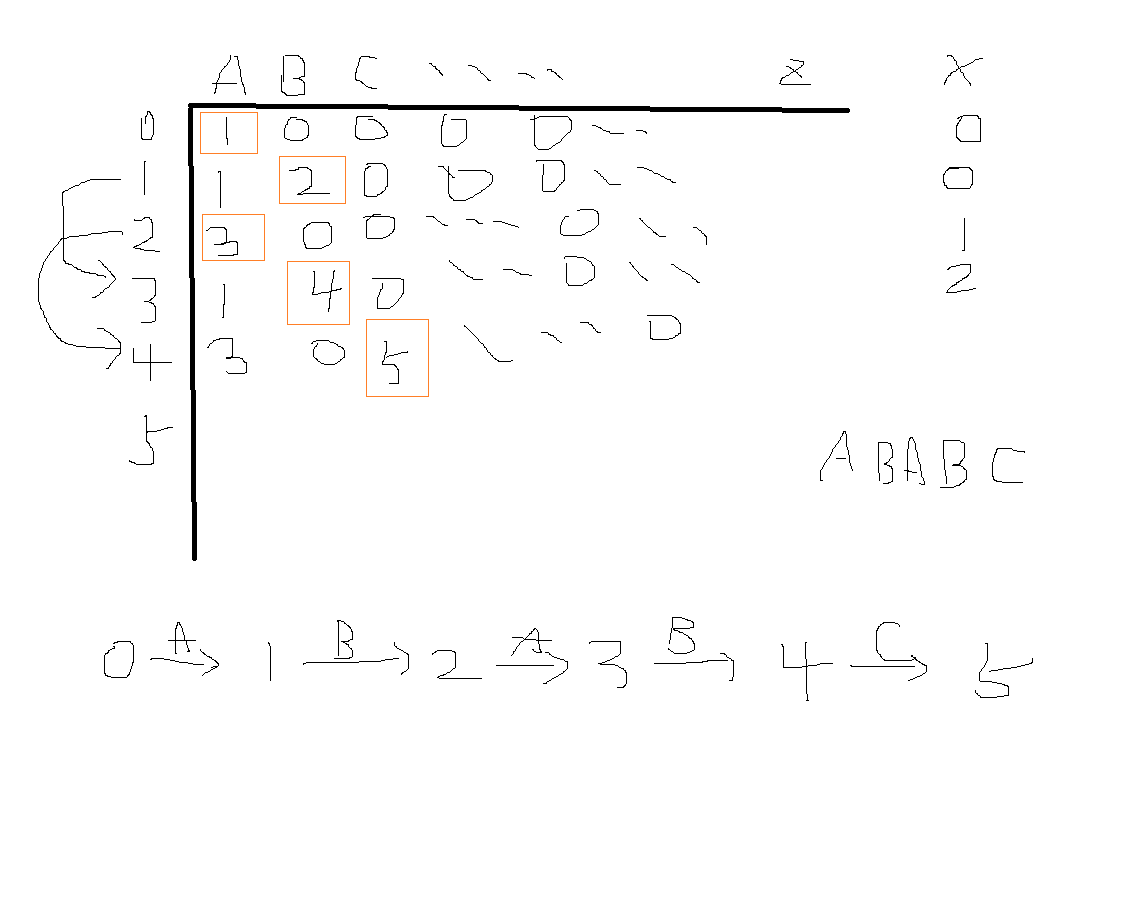 A B C ---- Z X
0 1 0 0 0 0 -- 0
1 1 2 0 0 0 -- 0
2 3 0 0 --- 0 -- 1
3 1 4 0 -- 0 -- 2
4 3 0 5 --- 0
5
A B A B C
0 A 1 B 2 A 3 B 4 C 5